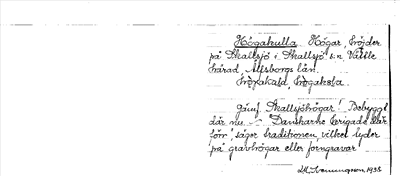 Högakulla Högar, höjder
på Skallsjö i Skallsjö sn Vättle
härad, Älfsborgs län.
Jämf. Skallsjöhögar! Bebyggt
där nu — "Danskarne krigade där
förr", säger traditionen, vilket tyder
på gravhögar eller forngravar
1935